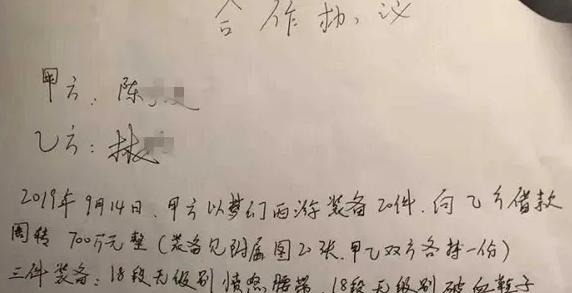 合作协议
甲方：陈
乙方：林
2019年9月14日，甲方以梦幻西游装备20件，向乙方借款
周转700万元整（装备见附属图23张，甲乙双方各持一份）
三件装备：18段无级别愤怒腰带，18段无级别破血鞋子